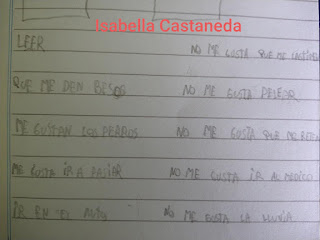 Isabella Castaneda
LEER NO ME GUSTA QUE ME
QUE ME DEN BESOS NO ME GUSTA PELEAR
ME GUSTAN LOS PERROS NO ME GUSTA QUE ME
ME GUSTA IR A PASIAR NO ME GUSTA IR AL MEDICO
IR EN EL AUTO NO ME GUSTA LA LLUVIA